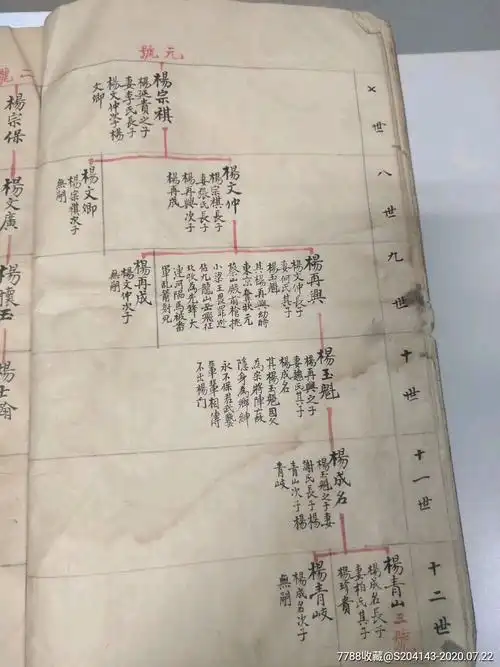 元號
七世
楊宗祺
楊派貴之子
妻李氏長子
楊文仲學楊
文卿
八世
楊文仲
楊宗祺長子
妻張氏長子
楊再興次子
楊再成
楊文卿
楊宗祺次子
無嗣
九世
楊再興
楊文仲長子
妻何氏其子
楊玉魁
其楊再興幼時
東京奪狀元
小梁王
佔九龍山岳飛征
北收為先鋒大
連河陷馬被番
軍亂箭射死
楊再成
楊文仲次子
無嗣
十世
楊玉魁
楊再興之子
妻趙氏其子
楊成名
其楊玉魁因父
為宋將陣亡
隱身為鄉紳
永不保君武藝
輩輩相傳
不出楊門
十一世
楊成名
楊玉魁之子妻
謝氏長子楊
青山次子楊
青岐
十二世
楊青山 三號
楊成名長子
妻柏氏其子
楊珍貴
楊青岐
楊成名次子
無嗣
二號
楊宗保
楊文廣
楊懷玉
楊士翰
7788收藏@S204143-2020.07.22